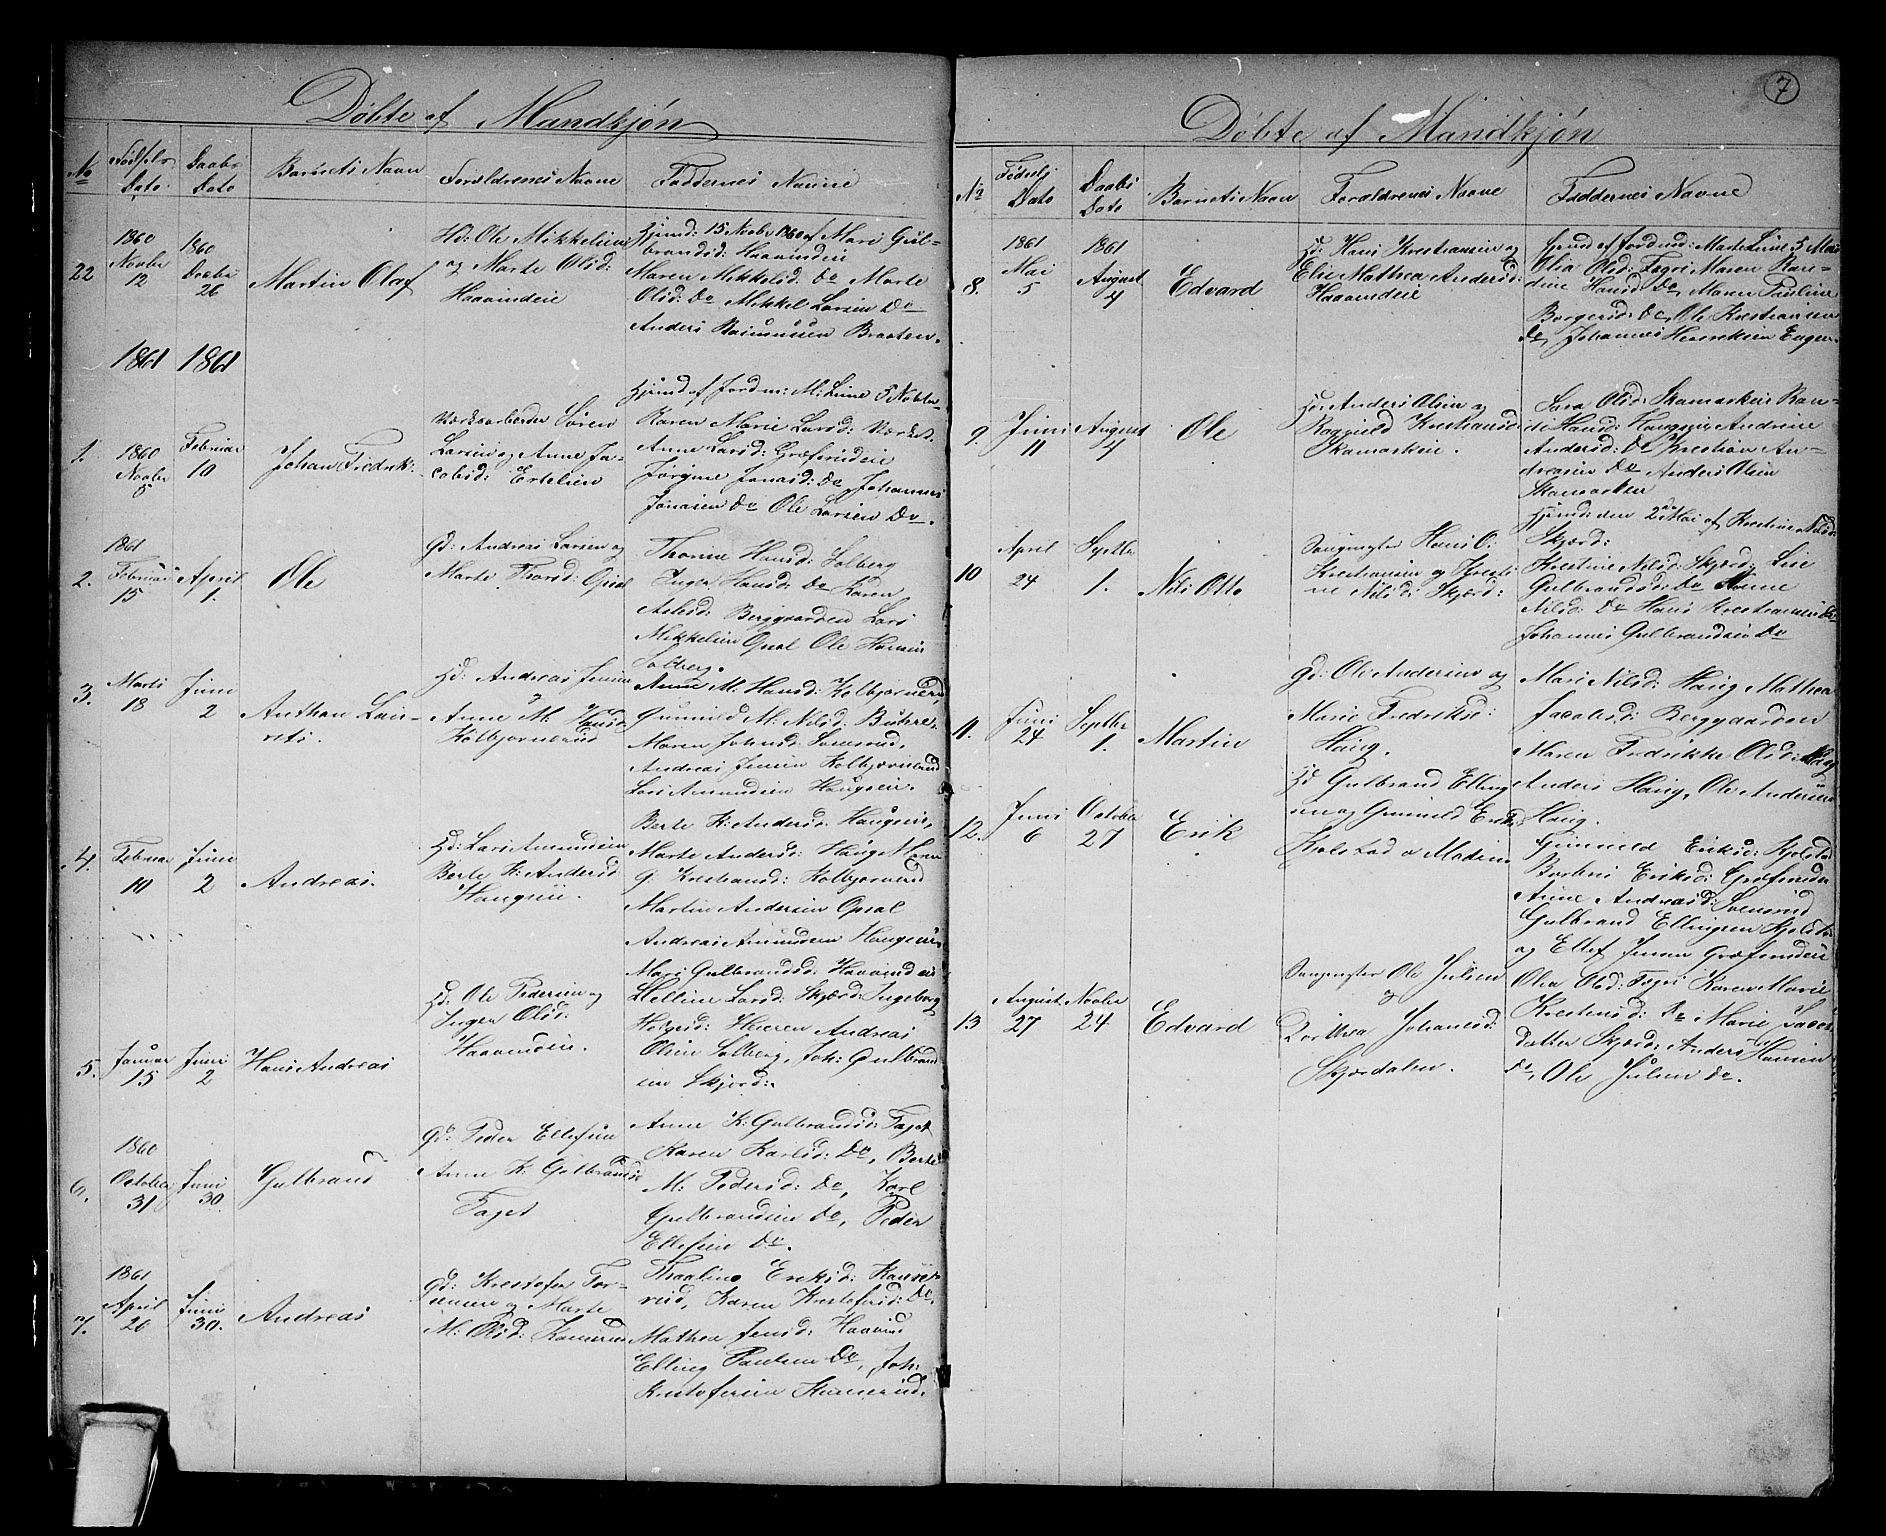 Døbte af Mandkjøn
No Fødsels Dato Daabs Dato Barnets Navn Forældrenes Navne Faddernes Navne
22 1860 Novbr 12 1860 Decbr 26 Martin Olaf
Hd: Ole Mikkelsen
og Marte Olsd:
Haavindeie
Hjemd: 15 Novbr 1860 af Mari Gul-
brandsd: Haavindeie
Maren Mikkelsd: Do Marte
Olsd: Do Mikkel Larsen Do
Anders Rasmussen Braaten.
1861 1861
1. 1860 Novbr 5 Februar 10 Johan Fredrik
Værksarbeider Søren
Larsen og Anne Ja-
cobsd: Ertelien
Hjemd af Jordm: M: Lime 5 Novbr
Karen Marie Larsd:
Anne Larsd: Græfsrudeie
Jørgine Jonasd: Do Johannes
Jonasen Do Ole Larsen Do.
2. 1861 Februar 15 April 1. Ole
Gd: Andreas Larsen og
Marte Thorsd: Opsal
Thorine Hansd: Solberg
Inger Hansd: Do Karen
Aslesd: Berggaarden Lars
Mikkelsen Opsal Ole Hansen
Solberg.
3. Marts 18 Juni 2 Anthon Lau-
rits.
Hd: Andreas Jensen
og
Anne M: Hansd
Kolbjørnsrud
Anne M: Hansd: Kolbjørnsrud,
Gunnild M: Nilsd: Buhre.
Maren Johnsd: Svensrud,
Andreas Jensen Kolbjørnsrud
Lars Amundsen Haugseie.
4. Februar 10 Juni 2 Andreas.
Hd: Lars Amundsen
Berte K: Andersd
Haugseie.
Berte K: Andersd: Haugseie,
Marte Andersd: Haug Maren
G: Krestiansd: Kolbjørnsrud
Martin Andersen Opsal
Andreas Amundsen Haugseie
5. Januar 15 Juni 2 Hans Andreas
Hd: Ole Pedersen og
Inger Olsd:
Haavindeie.
Mari Gulbrandsd: Haavindeie
Helline Larsd: Skjærd: Ingeborg
Andreas
Olsen Solberg, Joh: Gulbrand
sen Skjærd:
6. 1860 October 31 Juni 30. Gulbrand
Gd: Peder Ellefsen
Anne K: Gulbrandsd
Faget
Anne K: Gulbrandsd: Faget
Karen Karlsd: Do, Berte
M: Pedersd: Do, Karl
Gulbrandsen Do, Peder
Ellefsen Do.
7. 1861 April 20 Juni 30. Andreas
Gd: Krestofer Tor-
gersen og Marte
M: Olsd: Kamerud
Thaaline Eriksd: Kamer-
rud, Karen Krestofersd: Do,
Mathea Jensd: Haavind
Elling Paulsen Do, Joh:
Krestofersen Kamerud.
7
Døbte af Mandkjøn
No Fødsels Dato Daabs Dato Barnets Navn Forældrenes Navne Faddernes Navne
8. 1861 Mai 5 1861 August 4 Edvard
Hd Hans Krestiansen og
Elie Mathea Andersd:
Haavindeie
Hjemd af Jordmd: Marte Lime 5 Mai
Olia Olsd: Fagri Maren Ran-
dine Hansd: Do, Maren Pauline
Borgersd: Do, Ole Krestiansen
Do, Johannes Henriksen Engen.
9. Juni 11 August 4 Ole
Anders Olsen og
Ragnild Krestiansd
Skamarkeie.
Sara Olsd: Skamarkeie Ran-
di Hansd: Haugseie Andrine
Andersd: Do Krestian An-
dreasen Do Anders Olsen
Skamarkeie
10 April 24 Septbr 1. Nils Otto
Hans O:
Krestiansen og Kresti
ne Nilsd: Skjærd:
Hjemd: den 2den Mai af Krestine Nilsd
Skjærd:
Krestine Nilsd: Skjærd: Lise
Gulbrandsd: Do Nonne
Nilsd: Do Hans Krestiansen Do
Johannes Gulbrandsen Do
11. Juni 24 Septbr 1. Martin
Gd: Ole Andersen og
Marie Fredriksd:
Haug.
Mari Nilsd: Haug Mathea
Jacobsd: Berggaarden
Maren Fredrikke Olsd: Haug
Anders Haug, Ole Andersen
Haug.
12. Juni 6 October 27 Erik
Hd Gulbrand Elling
sen og Gunnild Eriksd
Kjølstad
Gunnild Eriksd: Kjølstad
Barbro Eriksd: Græfsrudeie
Anne Andreasd: Svensrud
Gulbrand Ellingsen Kjølstad
og Ellef Jensen Græfsrudeie
13 August 27 Novbr 24 Edvard
Ole Julsen
og
Dorthea Johansd:
Skjærdalen.
Olea Olsd: Fagri Karen Marie
Krestensd: Do Marie
datter Skjærd: Anders Hansen
Do, Ole Julsen Do.